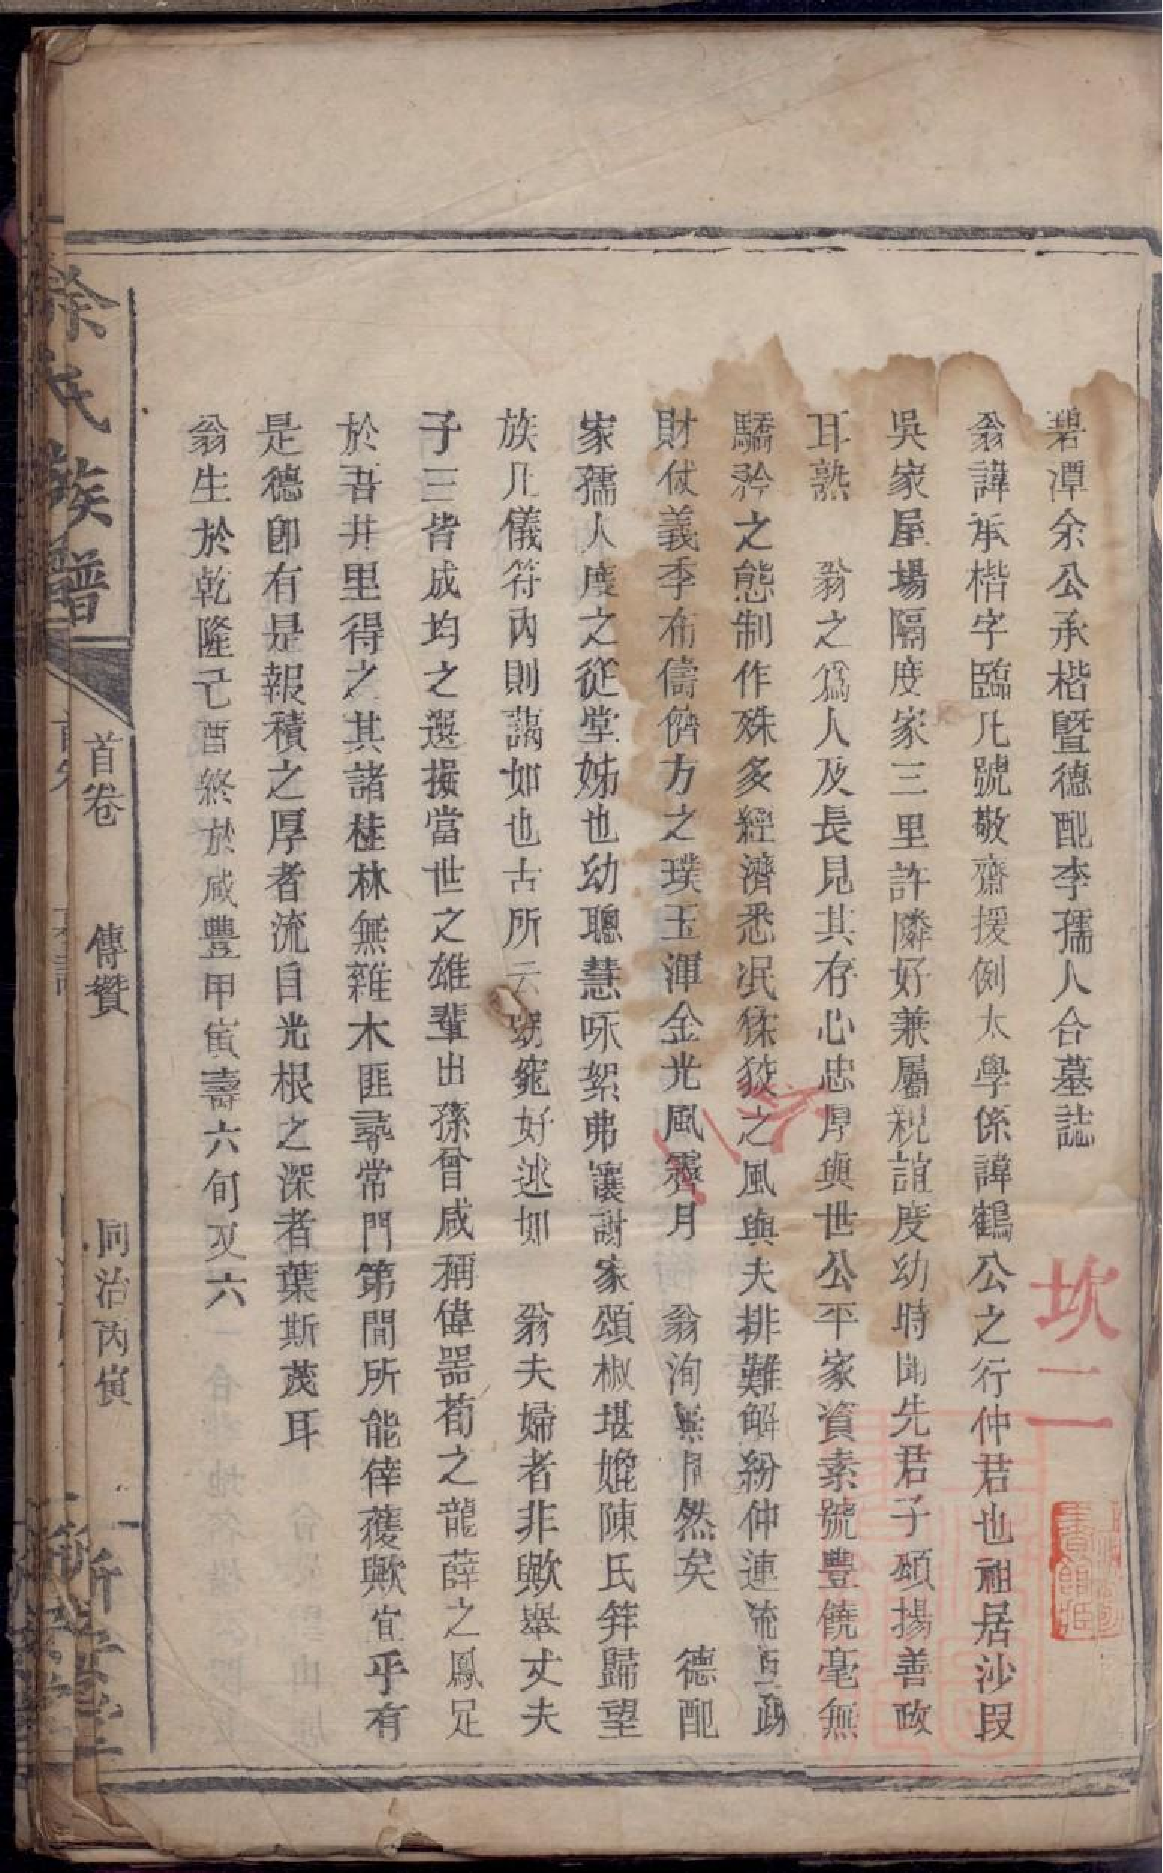 碧潭余公承楷暨德配李孺人合墓誌
翁諱承楷字臨凡號敬齋援例太學係諱鶴公之行仲君也祖居沙段
吳家屋場隔度家三里許隣好兼屬親誼度幼時聞先君子頌揚善政
耳熟 翁之爲人及長見其存心忠厚與世公平家資素號豐饒毫無
驕矜之態制作殊多經濟悉泯猱狡之風與夫排難解紛仲連流亞疎
財仗義季布儔儕方之璞玉渾金光風霽月 翁洵無間然矣 德配
家孺人度之從堂姊也幼聰慧咏絮弗讓謝家頌椒堪媲陳氏笄歸望
族凡儀符內則藹如也古所云窈窕好逑如 翁夫婦者非歟舉丈夫
子三皆成均之選攘當世之雄輩出孫曾咸稱偉器荀之龍薛之鳳足
於吾井里得之其諸桂林無雜木匪尋常門第間所能倖獲歟宜乎有
是德卽有是報積之厚者流自光根之深者葉斯茂耳
翁生於乾隆己酉終於咸豐甲寅壽六旬又六
余氏族譜
首卷 傳贊 同治丙寅
新安堂
坎二